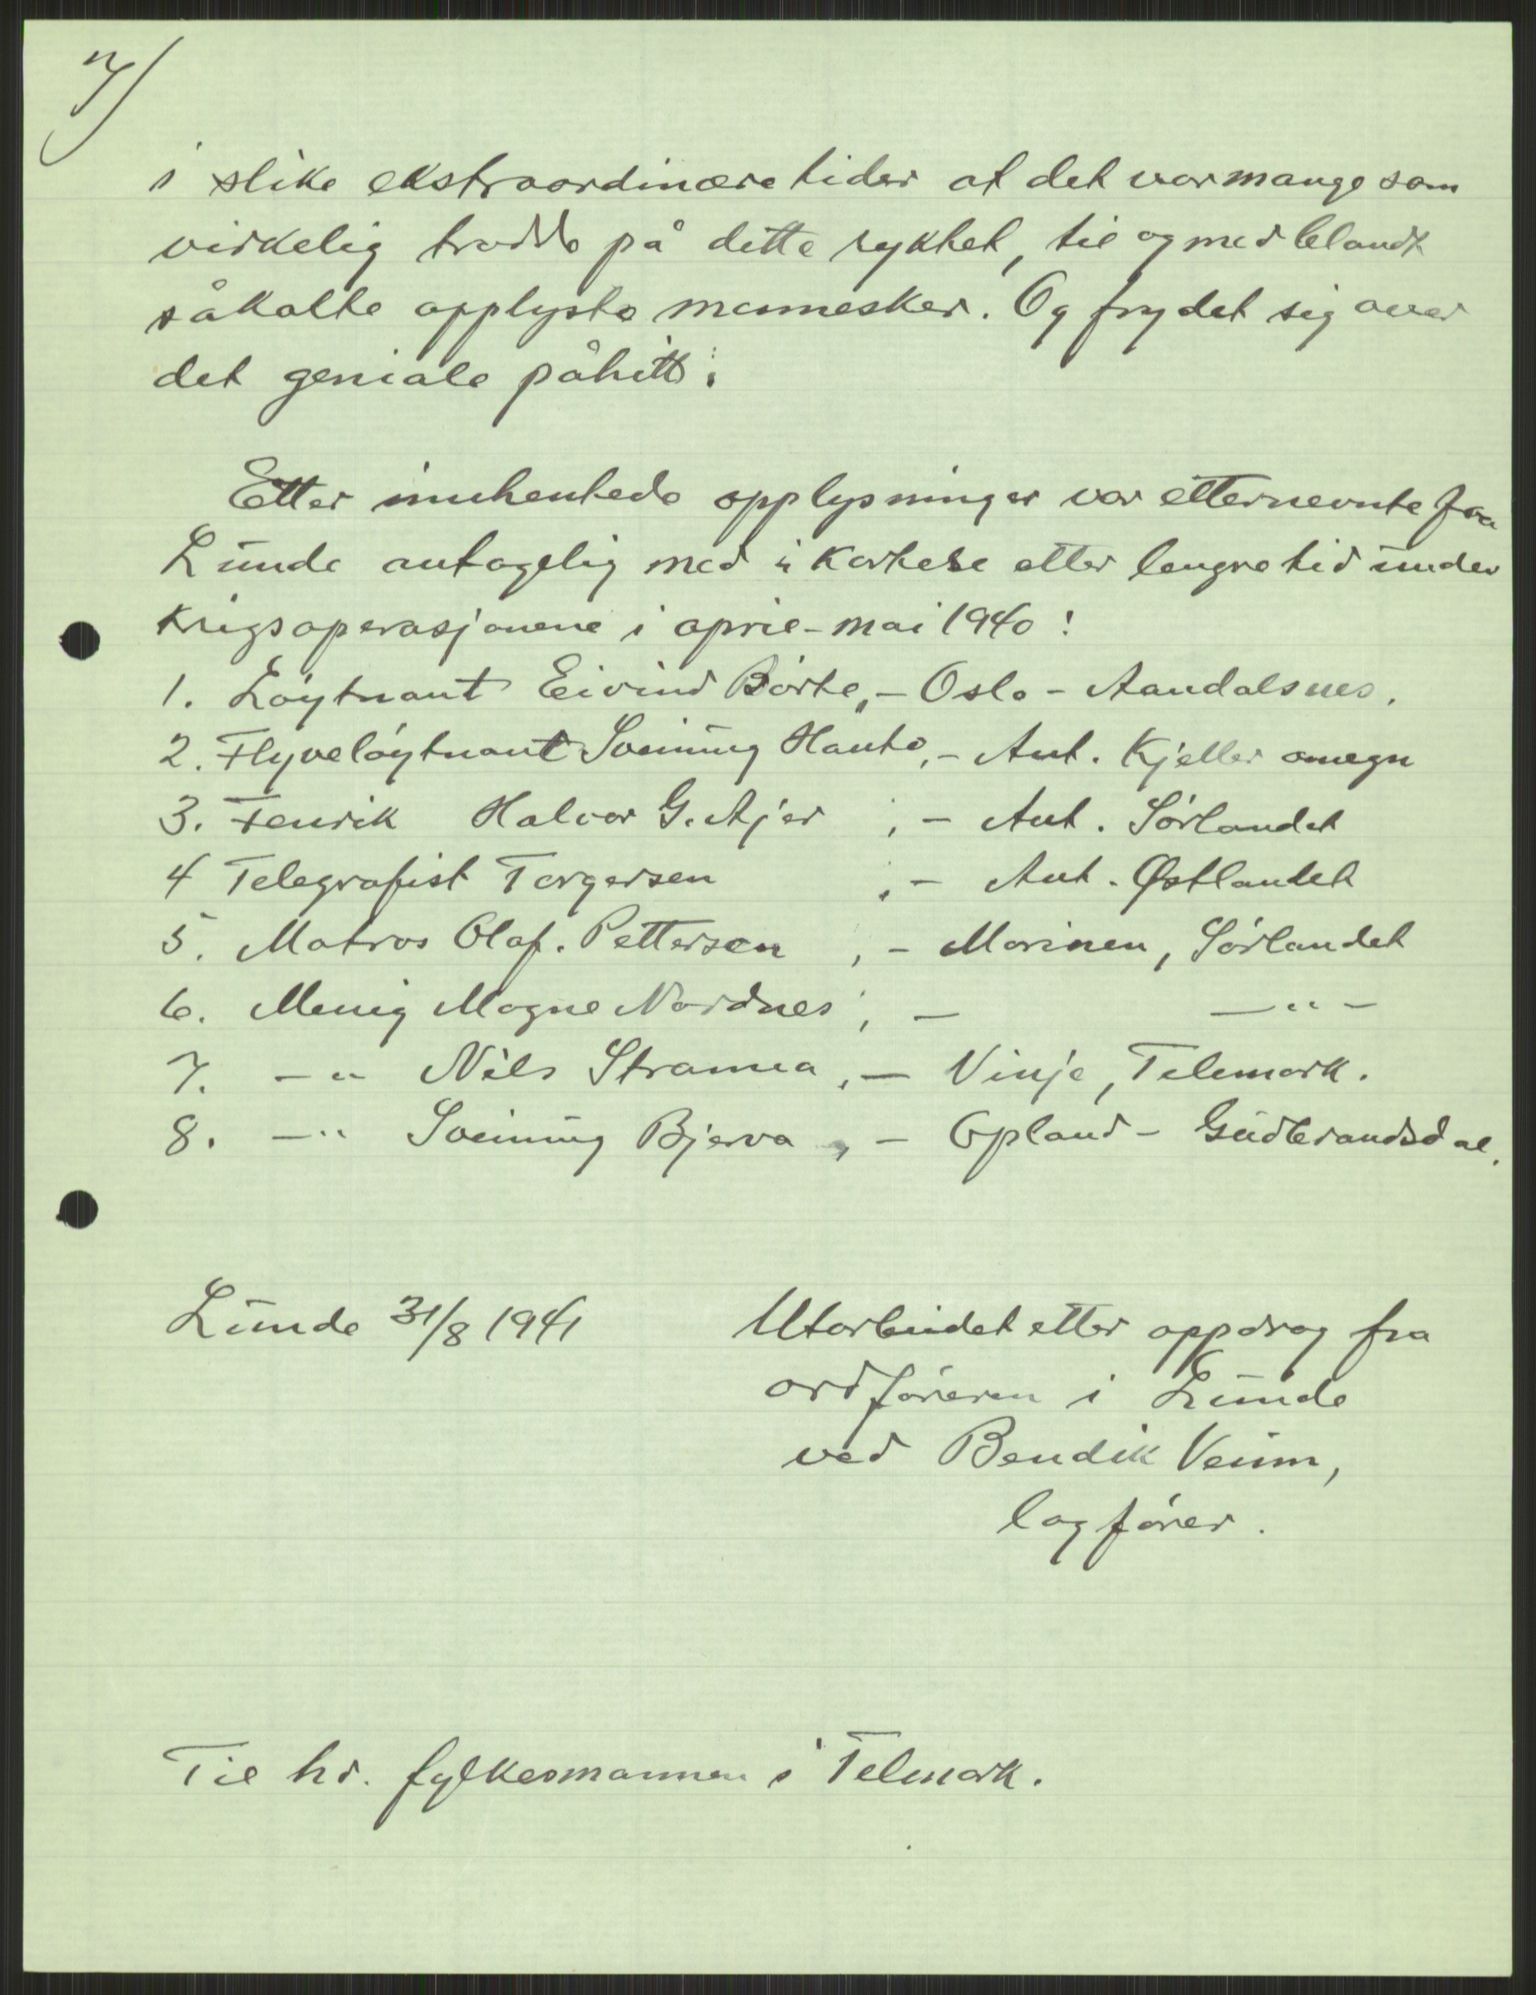 7)
i slike ekstraordinære tider at det var mange som
virkelig trodde på dette ryktet, til og med blandt
såkalte opplyste mennesker. Og frydet sig over
det geniale påhitt!
Etter innhentede opplysninger var etternevnte fra
Lunde antagelig med i kortere eller lengre tid under
krigsoperasjonene i april-mai 1940:
1. Løytnant Eivind Børte, - Oslo - Aandalsnes.
2. Flyveløytnant Sveinung Hanto, - Ant. Kjeller omegn
3. Fenrik Halvor G. Ajer , - Ant. Sørlandet
4 Telegrafist Torgersen , - Ant. Østlandet
5. Matros Olaf. Pettersen , - Marinen, Sørlandet
6. Menig Magne Nordnes , - -"-
7. -" Nils Stranna , - Vinje, Telemark.
8. -" Sveinung Bjerva , - Opland - Gudbrandsdal.
Lunde 31/8 1941
Utarbeidet etter oppdrag fra
ordføreren i Lunde
ved Bendik Veum,
lagfører.
Til hr. fylkesmannen i Telmark.